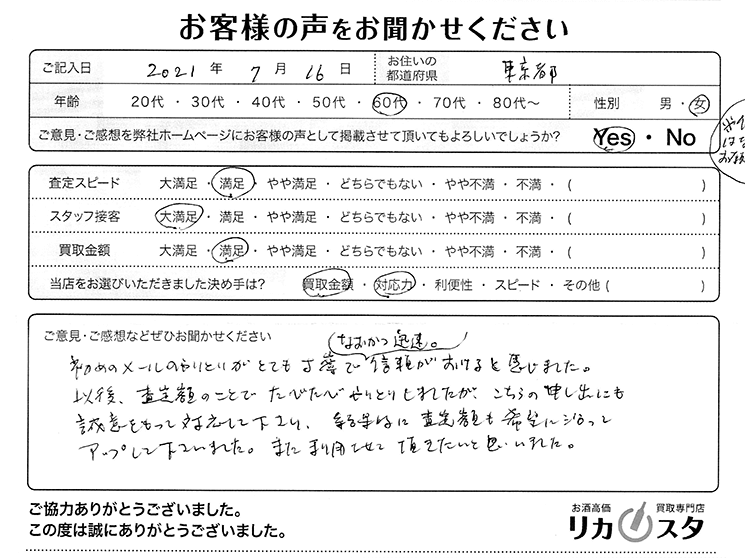 お客様の声をお聞かせください
ご記入日 2021 年 7 月 16 日 お住いの都道府県 東京都
年齢 20代 ・ 30代 ・ 40代 ・ 50代 ・ 60代 ・ 70代 ・ 80代～ 性別 男 ・ 女
ご意見・ご感想を弊社ホームページにお客様の声として掲載させて頂いてもよろしいでしょうか? Yes ・ No
査定スピード 大満足 ・ 満足 ・ やや満足 ・ どちらでもない ・ やや不満 ・ 不満 ・ ( )
スタッフ接客 大満足 ・ 満足 ・ やや満足 ・ どちらでもない ・ やや不満 ・ 不満 ・ ( )
買取金額 大満足 ・ 満足 ・ やや満足 ・ どちらでもない ・ やや不満 ・ 不満 ・ ( )
当店をお選びいただきました決め手は? 買取金額 ・ 対応力 ・ 利便性 ・ スピード ・ その他 ( )
ご意見・ご感想などぜひお聞かせください
なおかつ迅速。
初めのメールのやりとりがとても丁寧で信頼がおけると感じました。
以後、査定額のことでたびたびやりとりしましたが、こちらの申し出にも
誠意をもって対応して下さり、結果的に査定額も希望に沿って
アップして下さいました。また利用させて頂きたいと思いました。
ご協力ありがとうございました。
この度は誠にありがとうございます。
お酒高価 買取専門店
リカスタ